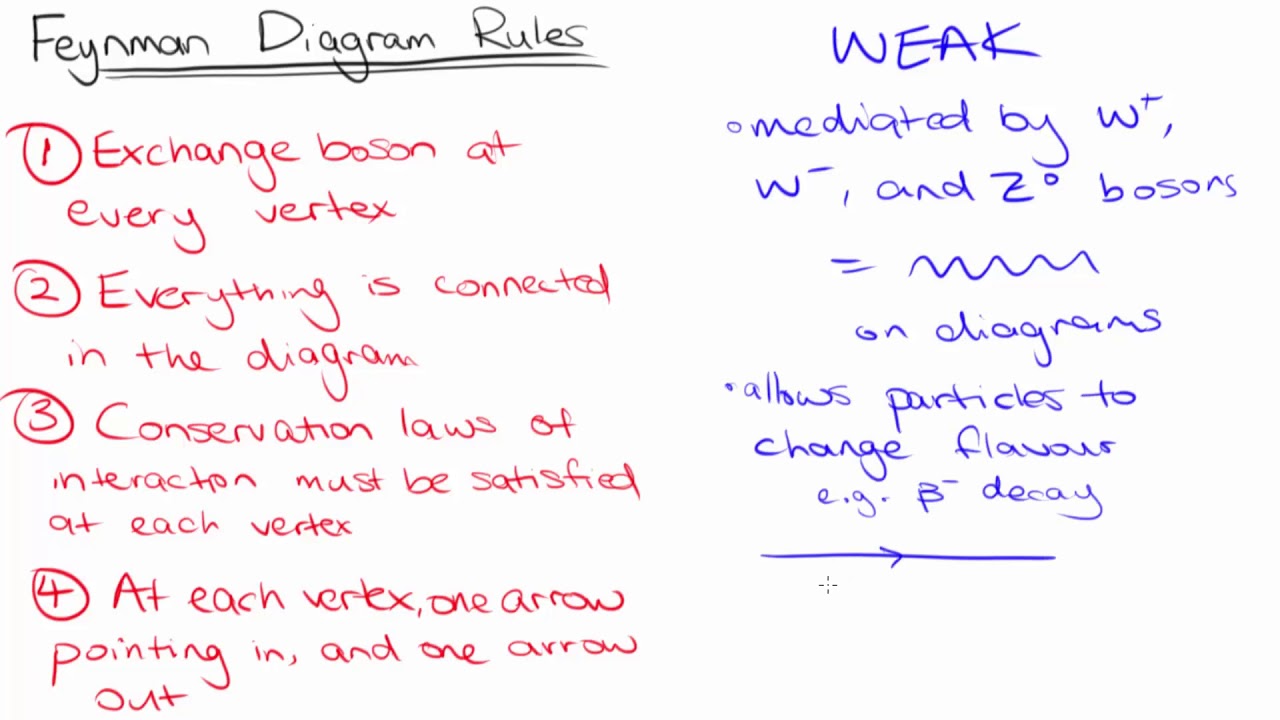 Feynman Diagram Rules
① Exchange boson at
every vertex
② Everything is connected
in the diagram
③ Conservation laws of
interaction must be satisfied
at each vertex
④ At each vertex, one arrow
pointing in, and one arrow
out
WEAK
• mediated by W⁺,
W⁻, and Z⁰ bosons
=
on diagrams
• allows particles to
change flavour
e.g. β⁻ decay